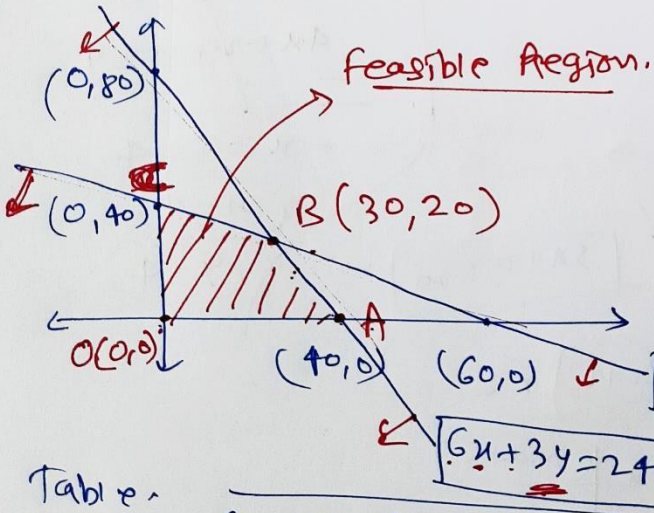 Feasible Region.
(0,80)
(0,40)
B(30,20)
O(0,0)
A
(40,0)
(60,0)
6x+3y=24
Table.